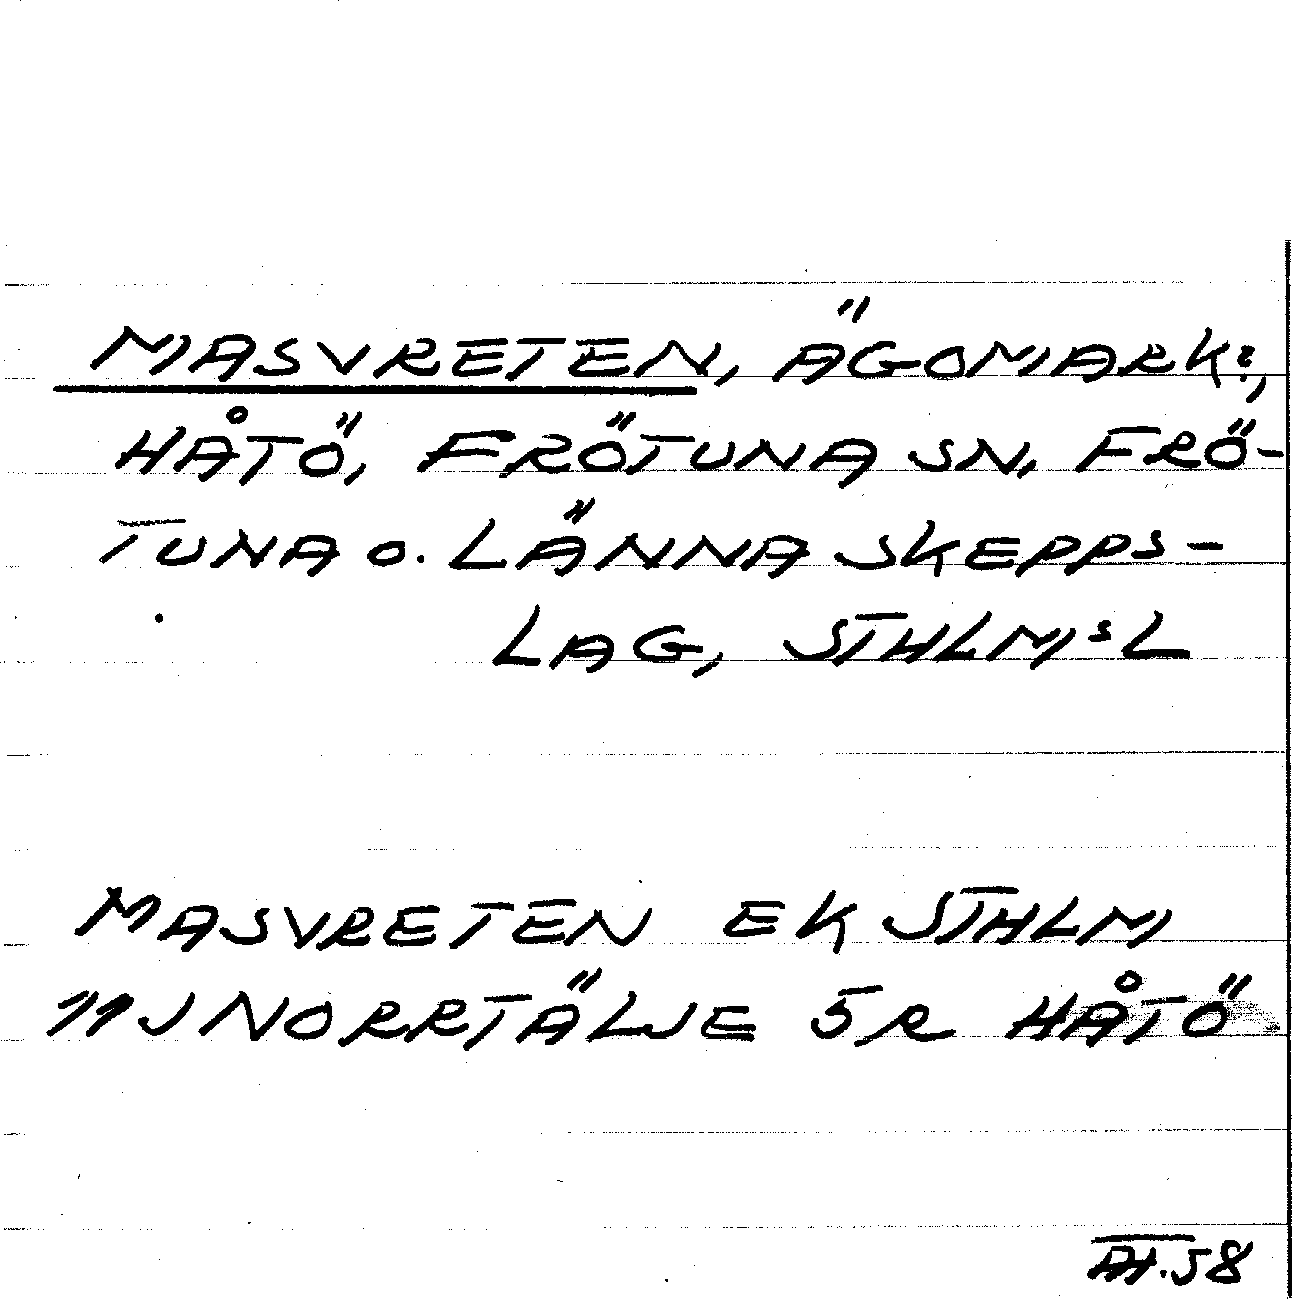 MASVRETEN, ÄGOMARK?,
HÅTÖ, FRÖTUNA SN, FRÖ-
TUNA O. LÄNNA SKEPPS-
LAG, STHLM:S L
MASVRETEN EK STHLM
11J NORRTÄLJE 5R HÅTÖ